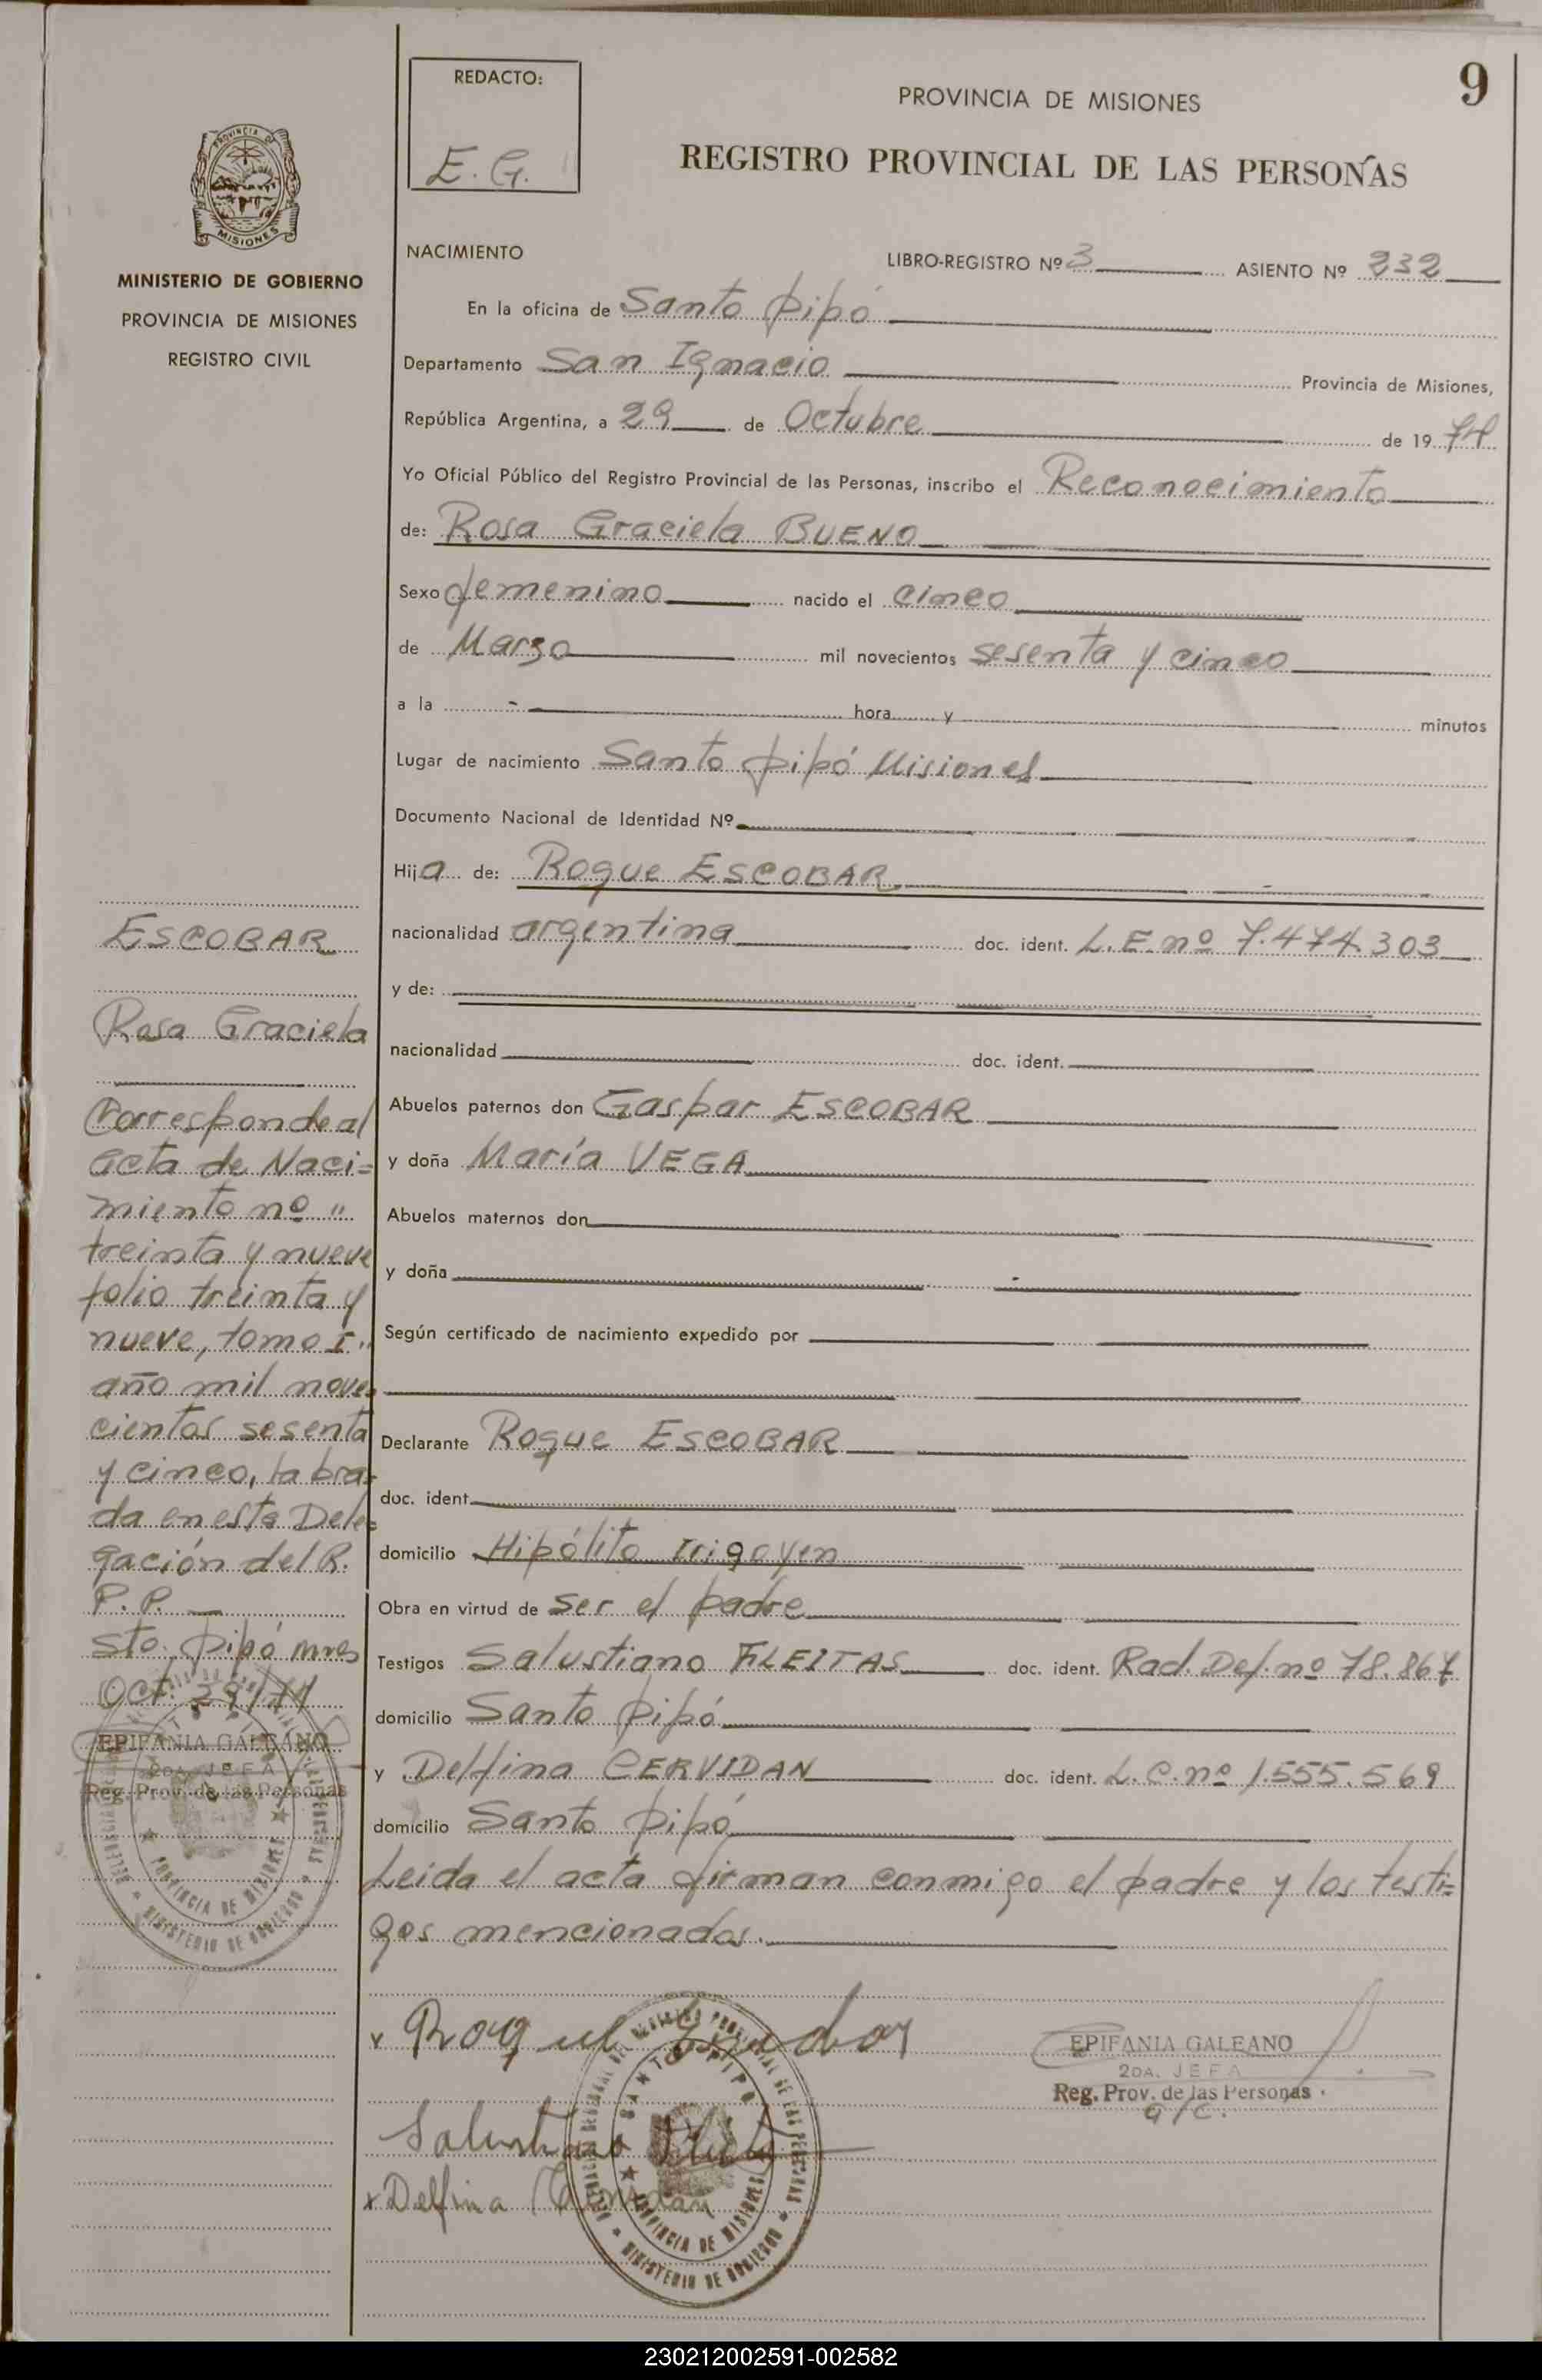 9
REDACTO:
E. G.
PROVINCIA DE MISIONES
REGISTRO PROVINCIAL DE LAS PERSONAS
PROVINCIA DE
MISIONES
MINISTERIO DE GOBIERNO
PROVINCIA DE MISIONES
REGISTRO CIVIL
NACIMIENTO LIBRO-REGISTRO Nº 3 ASIENTO Nº 232
En la oficina de Santo Pipó
Departamento San Ignacio Provincia de Misiones,
República Argentina, a 29 de Octubre de 1974
Yo Oficial Público del Registro Provincial de las Personas, inscribo el Reconocimiento
de: Rosa Graciela BUENO
Sexo femenino nacido el cinco
de Marzo mil novecientos sesenta y cinco
a la - hora y minutos
Lugar de nacimiento Santo Pipó Misiones
Documento Nacional de Identidad Nº
Hija de: Roque ESCOBAR
nacionalidad argentina doc. ident. L.E. nº 7.474.303
y de:
nacionalidad doc. ident.
Abuelos paternos don Gaspar ESCOBAR
y doña María VEGA
Abuelos maternos don
y doña
Según certificado de nacimiento expedido por
Declarante Roque ESCOBAR
doc. ident.
domicilio Hipólito Irigoyen
Obra en virtud de ser el padre
Testigos Salustiano FLEITAS doc. ident. Rad. Def. nº 78.867
domicilio Santo Pipó
y Delfina CERVIDAN doc. ident. L.C. nº 1.555.569
domicilio Santo Pipó
Leida el acta firman conmigo el padre y los testi=
gos mencionados.
ESCOBAR
Rosa Graciela
Corresponde al
acta de Naci=
miento nº "
treinta y nueve
folio treinta y
nueve, tomo I"
año mil nove=
cientos sesenta
y cinco, labra=
da en esta Dele=
gación del R.
P. P.
Sto. Pipó Mnes
Oct. 29/74
EPIFANIA GALEANO
2DA. JEFA
Reg. Prov. de las Personas
PROVINCIA DE MISIONES
MINISTERIO DE GOBIERNO
x Roque
Salustiano
x Delfina
SANTO PIPO
PROVINCIA DE MISIONES
MINISTERIO DE GOBIERNO
EPIFANIA GALEANO
2DA. JEFA
Reg. Prov. de las Personas
a/c.
230212002591-002582